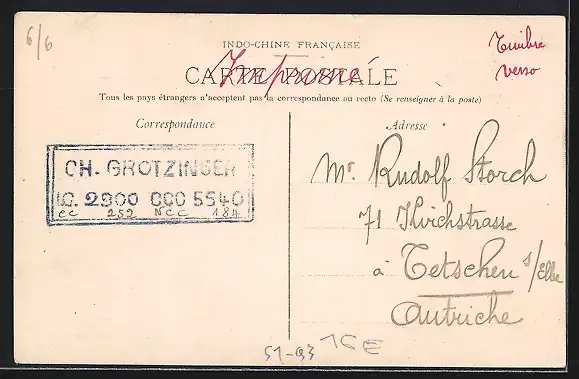 6/6
INDO-CHINE FRANÇAISE
Timbre
verso
CARTE POSTALE
Imprimé
Tous les pays étrangers n'acceptent pas la correspondance au recto (Se renseigner à la poste)
Correspondance
Adresse
CH. GROTZINGER
I.C. 2900 CCC 5540
cc 252 NCC 184
Mr. Rudolf Storch
71 Kirchstrasse
à Tetschen s/Elbe
Autriche
51-93 15E